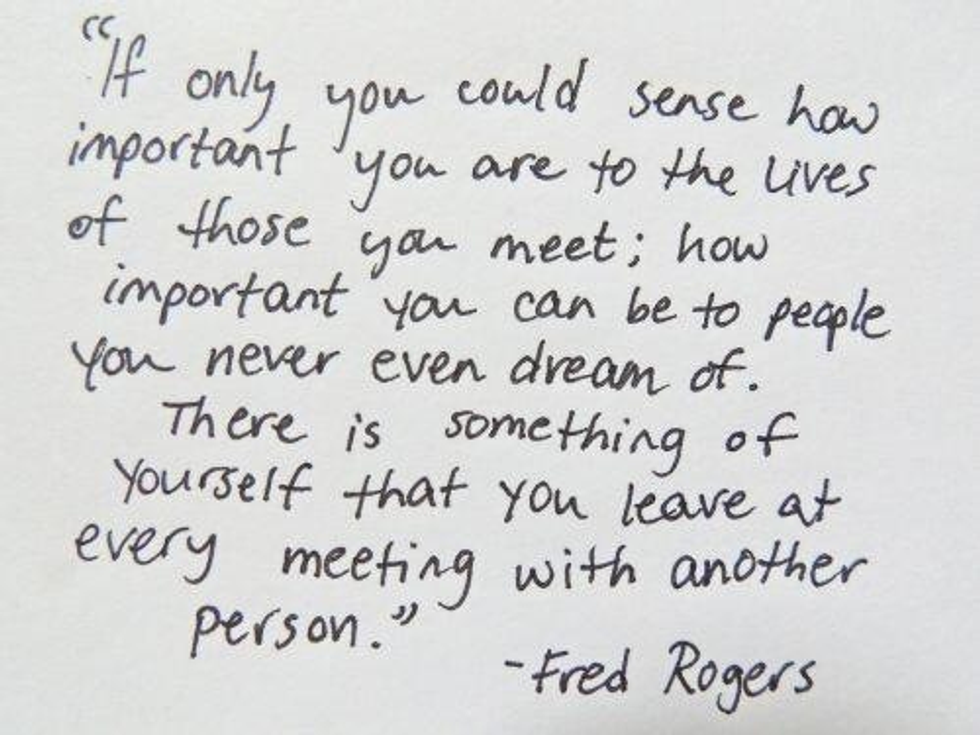 “If only you could sense how
important you are to the lives
of those you meet; how
important you can be to people
you never even dream of.
There is something of
yourself that you leave at
every meeting with another
person.”
-Fred Rogers